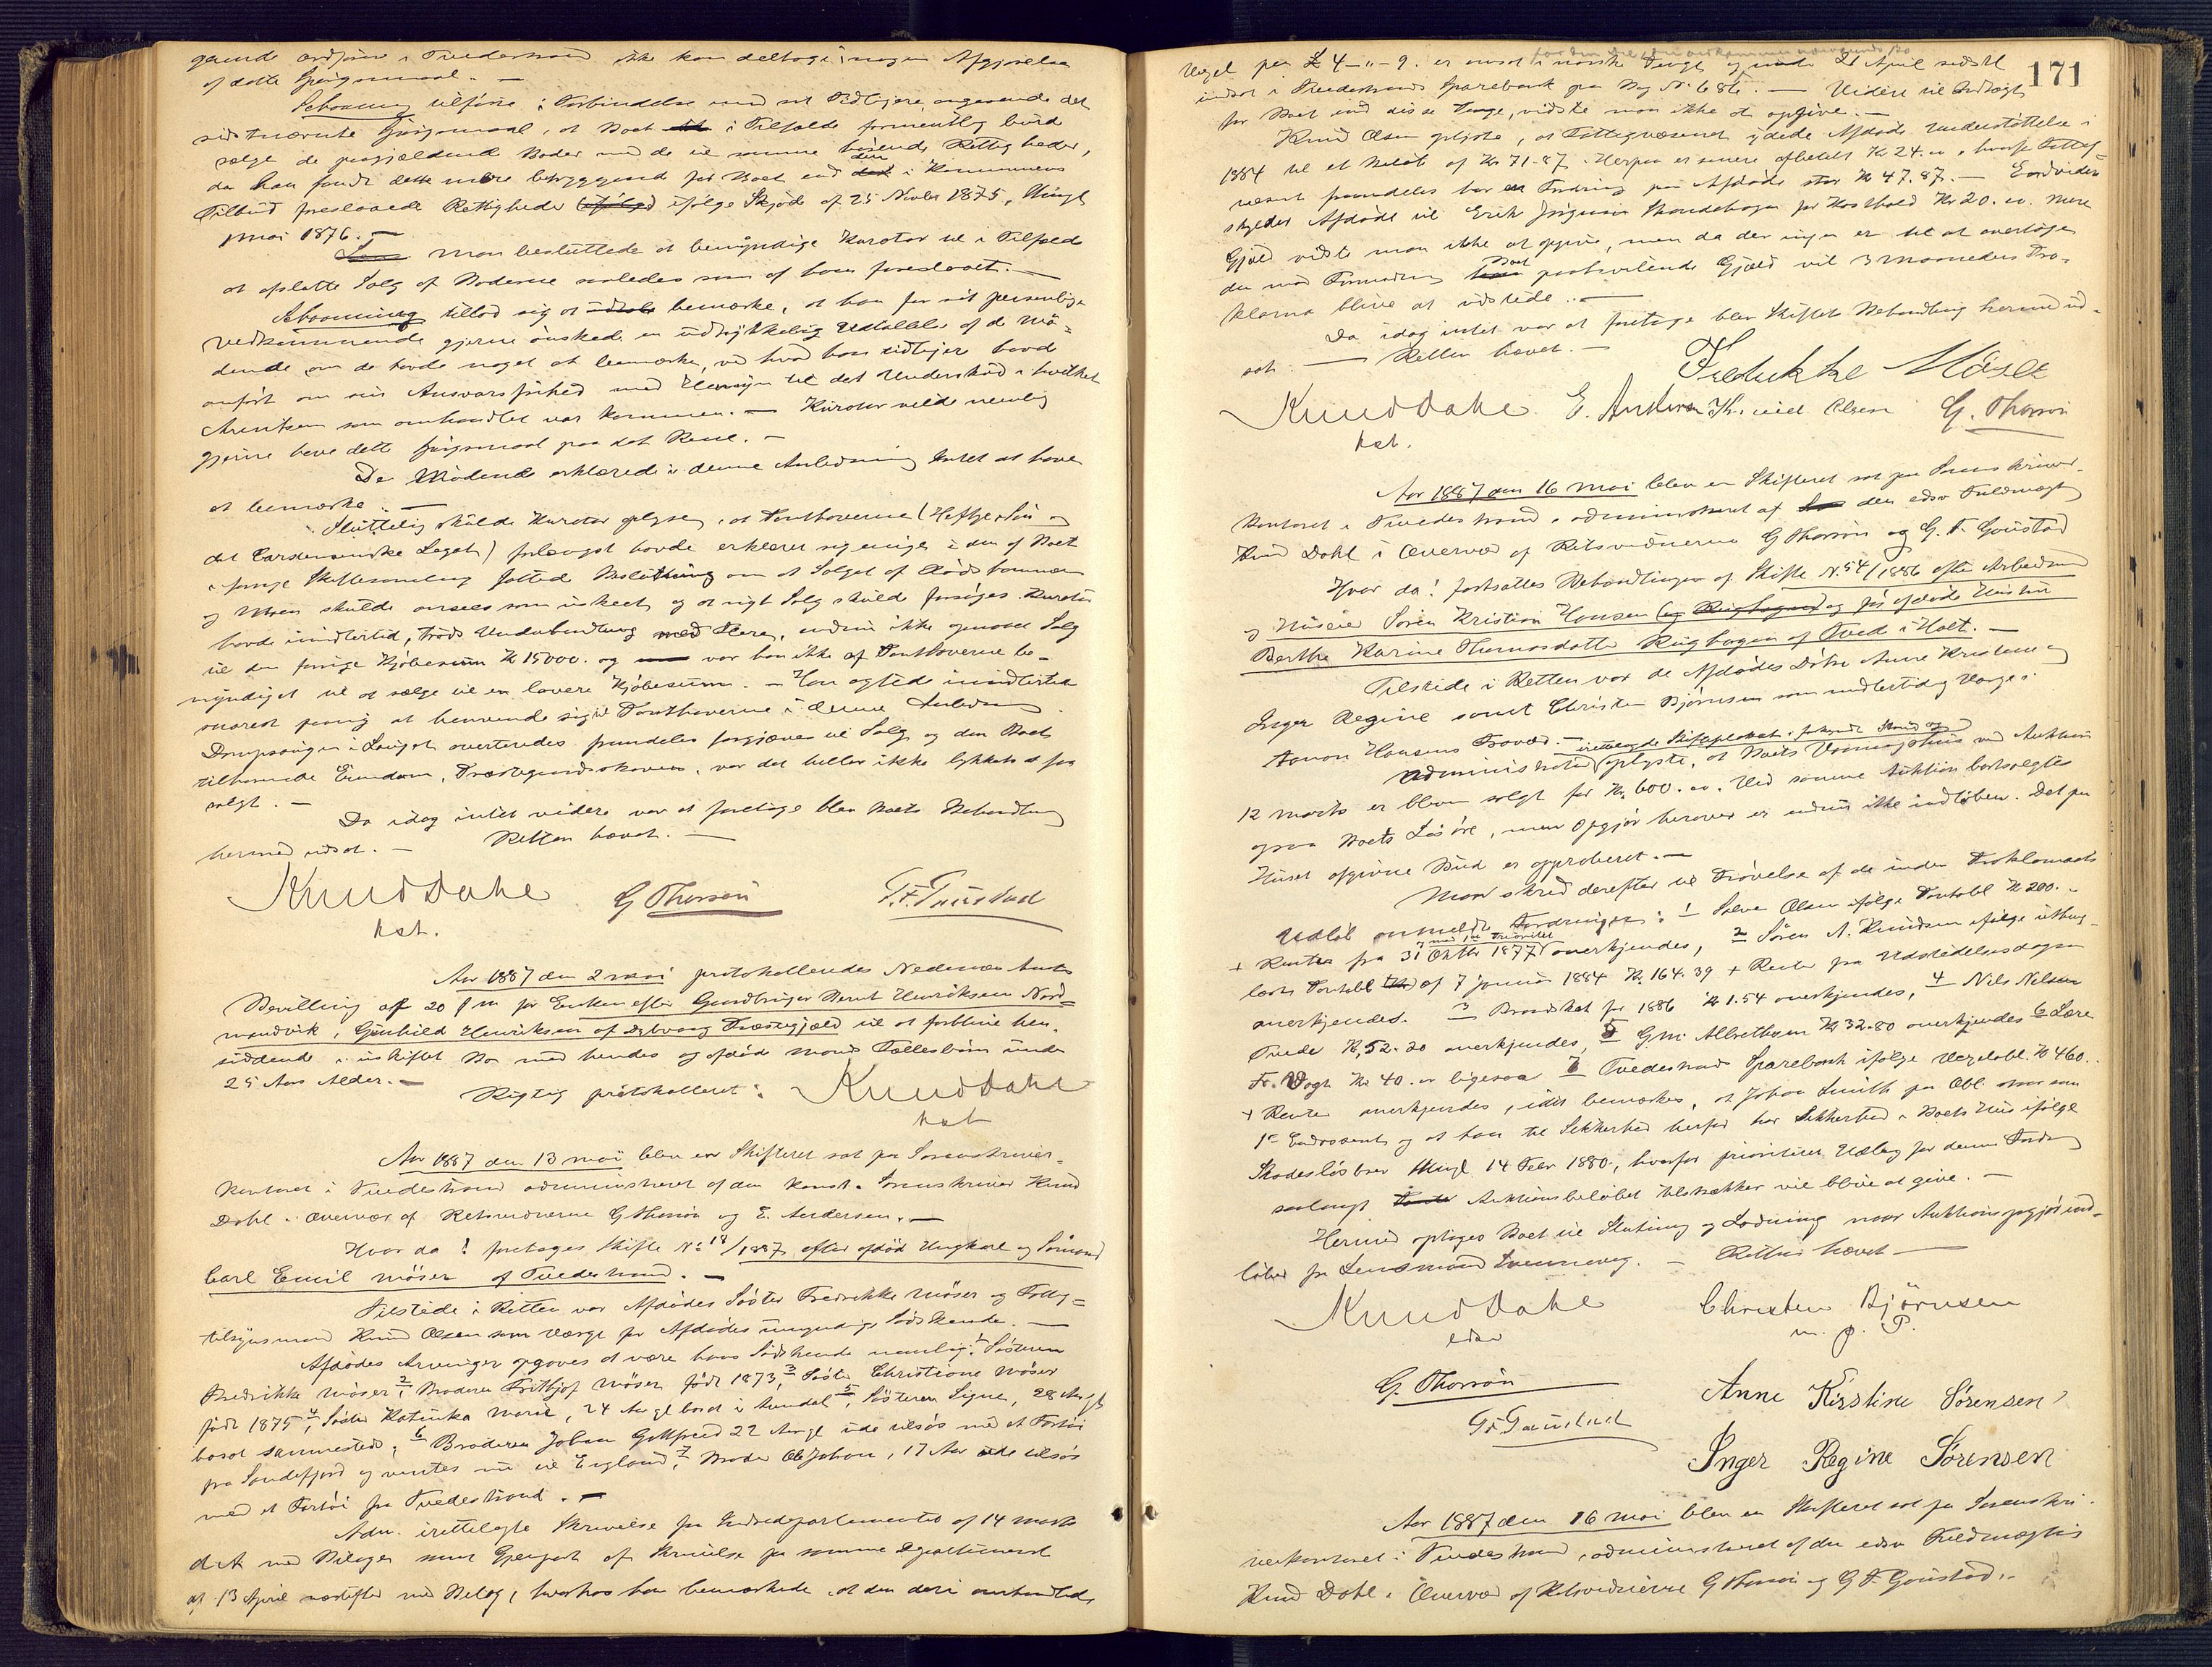 gaende Ordfører i Tvedestrand ikke kan deltage i nogen Afgjørelse
af dette Spørgsmaal. —
Schooning tilføiede i Forbindelse med sit Tidligere angaaende det
sidstnævnte Spørgsmaal, at Boet i Tilfælde formentlig burde
sælge de paagjældende Boder med de til samme hørende Rettigheder,
da han fandt dette mere betryggende for Boet end den i Kommunens
Tilbud foreslaaede Rettigheder ifølge Skjøde af 25 Novbr 1875, thingl
mai 1876. —
Man besluttede at bemyndige Kurator til i Tilfælde
at afslutte Salg af Boderne saaledes som af ham foreslaaet. —
Schooning tillod sig at bemærke, at han for sit personlige
Vedkommende gjerne ønskede en udtrykkelig Udtalelse af de Mø-
dende om de havde noget at bemærke, ved hvad han tidligere havde
anført om sin Ansvarsfrihed med Hensyn til det Underskud i hvilket
Arentsen som omhandlet var kommen. — Kurator vilde nemlig
gjerne have dette Spørgsmaal paa det Rene. —
De Mødende erklærede i denne Anledning Intet at have
at bemærke. —
Sluttelig skulde Kurator oplyse, at Panthaverne (Heftye & Søn og
det Carstensenske Legat) forlængst havde erklæret sig enige i den af Boet
i forrige Skiftesamling fattede Beslutning om at Salget af
og skulde ansees som uskeet, og at nyt Salg skulde forsøges. Kurator
havde imidlertid, trods Underhandling med Flere, endnu ikke opnaaet Salg
til den forrige Kjøbesum Kr 15000. og var han ikke af Panthaverne be-
myndiget til at sælge til en lavere Kjøbesum. — Han agtede imidlertid
snarest mulig at henvende sig til Panthaverne i denne Anledning.
Dampsagen i averteredes fremdeles forgjæves til Salg og den Boet
tilhørende Eiendom, Præstegaardsskoven, var det heller ikke lykkets at faa
solgt. —
Da idag intet videre var at foretage blev Boets Behandling
hermed udsat. — Retten hævet. —
Knud Dahl G Thorsøn G. F. Gaustad
kst.
Aar 1887 den 2 mai protokolleredes Nedenæs Amts
Bevilling af 20 f m for Enken efter Gaardbruger Bernt Henriksen Nord-
mandvik, Gunhild Henriksen af Dybvaag Præstegjæld til at forblive hen-
siddende i uskiftet Bo med hendes og afdøde Mands Fællesbørn under
25 Aars Alder. —
Rigtig protokolleret: Knud Dahl
kst
Aar 1887 den 13 mai blev en Skifteret sat paa Sorenskriver-
kontoret i Tvedestrand administreret af den konst. Sorenskriver Knud
Dahl i Overvær af Retsvidnerne G Thorsøn og E. Andersen. —
Hvor da! foretages Skifte No 18/1887 efter afdød Ungkarl og Sømand
Carl Emil Möser af Tvedestrand. —
Tilstede i Retten var Afdødes Søster Fredrikke Möser og Fattig-
tilsynsmand Knud Olsen som Værge for Afdødes umyndige Sødskende. —
Afdødes Arvinger opgaves at være hans Sødskende nemlig: 1 Søsteren
Fredrikke Möser, 2 Broderen Frithjof Möser født 1873, 3 Søster Christiane Möser
født 1875, 4 Søster Katinka Marie, 24 Aar gl bosat i Arendal, 5 Søsteren Signe, 28 Aar gl
bosat sammesteds, 6 Broderen Johan Gottfried 22 Aar gl ude tilsøs med et Fartøi
fra Sandefjord og ventes nu til England, 7 Broder Ole Johan, 17 Aar ude tilsøs
med et Fartøi fra Tvedestrand. —
Adm. irettelagte Skrivelse fra Indredepartementet af 14 marts
d A med Bilager samt Gjenpart af Skrivelse fra samme Departement
af 13 April næstefter med Bilag, hvorhos han bemærkede, at den deri omhandlede
171
Vexel paa £ 4-"-9. er omsat i norske Penge og 21 April sidstl
indsat i Tvedestrands Sparebank paa Bog No 686. — Videre til Indtægt
for Boet end disse Penge, vidste man ikke at opgive. —
Knud Olsen oplyste, at Fattigvæsenet ydede Afdøde Understøttelse i
1884 til et Beløb af Kr 71.87. Herpaa er senere afbetalt Kr 24.00, hvorfor Fattig-
væsenet fremdeles har en Fordring paa Afdøde stor Kr 47.87. — Endvidere
skyldte Afdøde til Erik Jörgensen for Kosthold Kr 20.00. Mere
Gjæld vidste man ikke at opgive, men da der ingen er til at overtage
den mod Formodning Boet paahvilende Gjæld vil 3 Maaneders Pro-
klama blive at udstede. —
Da idag intet var at foretage blev Skiftets Behandling hermed ud-
sat. — Retten hævet. —
Fredrikke Möser
Knud Dahl E. Andersen Knud Olsen G. Thorsøn
kst.
Aar 1887 den 16 mai blev en Skifteret sat paa Sorenskriver-
kontoret i Tvedestrand, administreret af den edsv Fuldmægtig
Knud Dahl i Overvær af Retsvidnerne G Thorsøn og G. F. Gaustad
Hvor da! fortsattes Behandlingen af Skifte No 54/1886 efter Arbeidsmand
og Huseier Søren Kristian Hansen og før afdøde Hustru
Berthe Karine Thomasdatter Rughagen af Tved i Holt. —
Tilstede i Retten var de Afdødes Døtre Anne Kristine og
Inger Regine samt Christen Bjørnsen som midlertidig Værge i
Aanon Hansens Fravær. —
Administrator oplyste, at Boets Vaaningshus ved Auktion
12 marts er bleven solgt for Kr 600.00. Ved samme Auktion bortsolgtes
ogsaa Boets Løsøre, men Opgjør herover er endnu ikke indløben. Det paa
Huset afgivne Bud er approberet. —
Man skred derefter til Prøvelse af de inden Proklamaets
Udløb anmeldte Fordringer: 1 Salve Olsen ifølge Pantobl Kr 200.
+ Renter fra 31 Oktbr 1877 med 1ste Prioritet anerkjendes, 2 Søren A. Knudsen ifølge uthing-
læst Pantobl af 7 Januar 1884 Kr. 164.39 + Renter fra Udstedelsesdagen
anerkjendes. 3 Brandskat for 1886 Kr 1.54 anerkjendes, 4 Nils Nilsen
Tvede Kr. 52.20 anerkjendes, 5 G. M. Albrethsen Kr 32.80 anerkjendes 6 Lære
Fr. Vogt Kr 40.00 ligesaa 7 Tvedestrands Sparebank ifølge Vexelobl. Kr 460.
+ Renter anerkjendes, idet bemærkes, at Johan Smith paa Obl staar som
1ste Endossent og at han til Sikkerhed herfor har Sikkerhed i Boets Hus ifølge
Skadesløsbrev thingl 14 Febr 1880, hvorfor prioriteret Udlæg for denne Fordring
saalangt Auktionsbeløbet tilstrækker vil blive at give. —
Hermed optages Boet til Slutning og Lodning naar Auktionsopgjør ind-
løber fra Lensmand Svennevig. — Retten hævet —
Knud Dahl Christen Björnsen
edsv m. p. P.
G. Thorsøn Anne Kirstine Sørensen
G. F. Gaustad
Inger Regine Sørensen
Aar 1887 den 16 mai blev en Skifteret sat paa Sorenskri-
verkontoret i Tvedestrand, administreret af den edsv Fuldmægtig
Knud Dahl i Overvær af Retsvidnerne G Thorsøn og G F. Gaustad. —